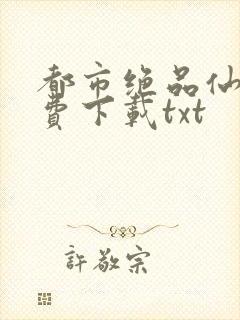 都市绝品仙
費下載txt
許敬宗